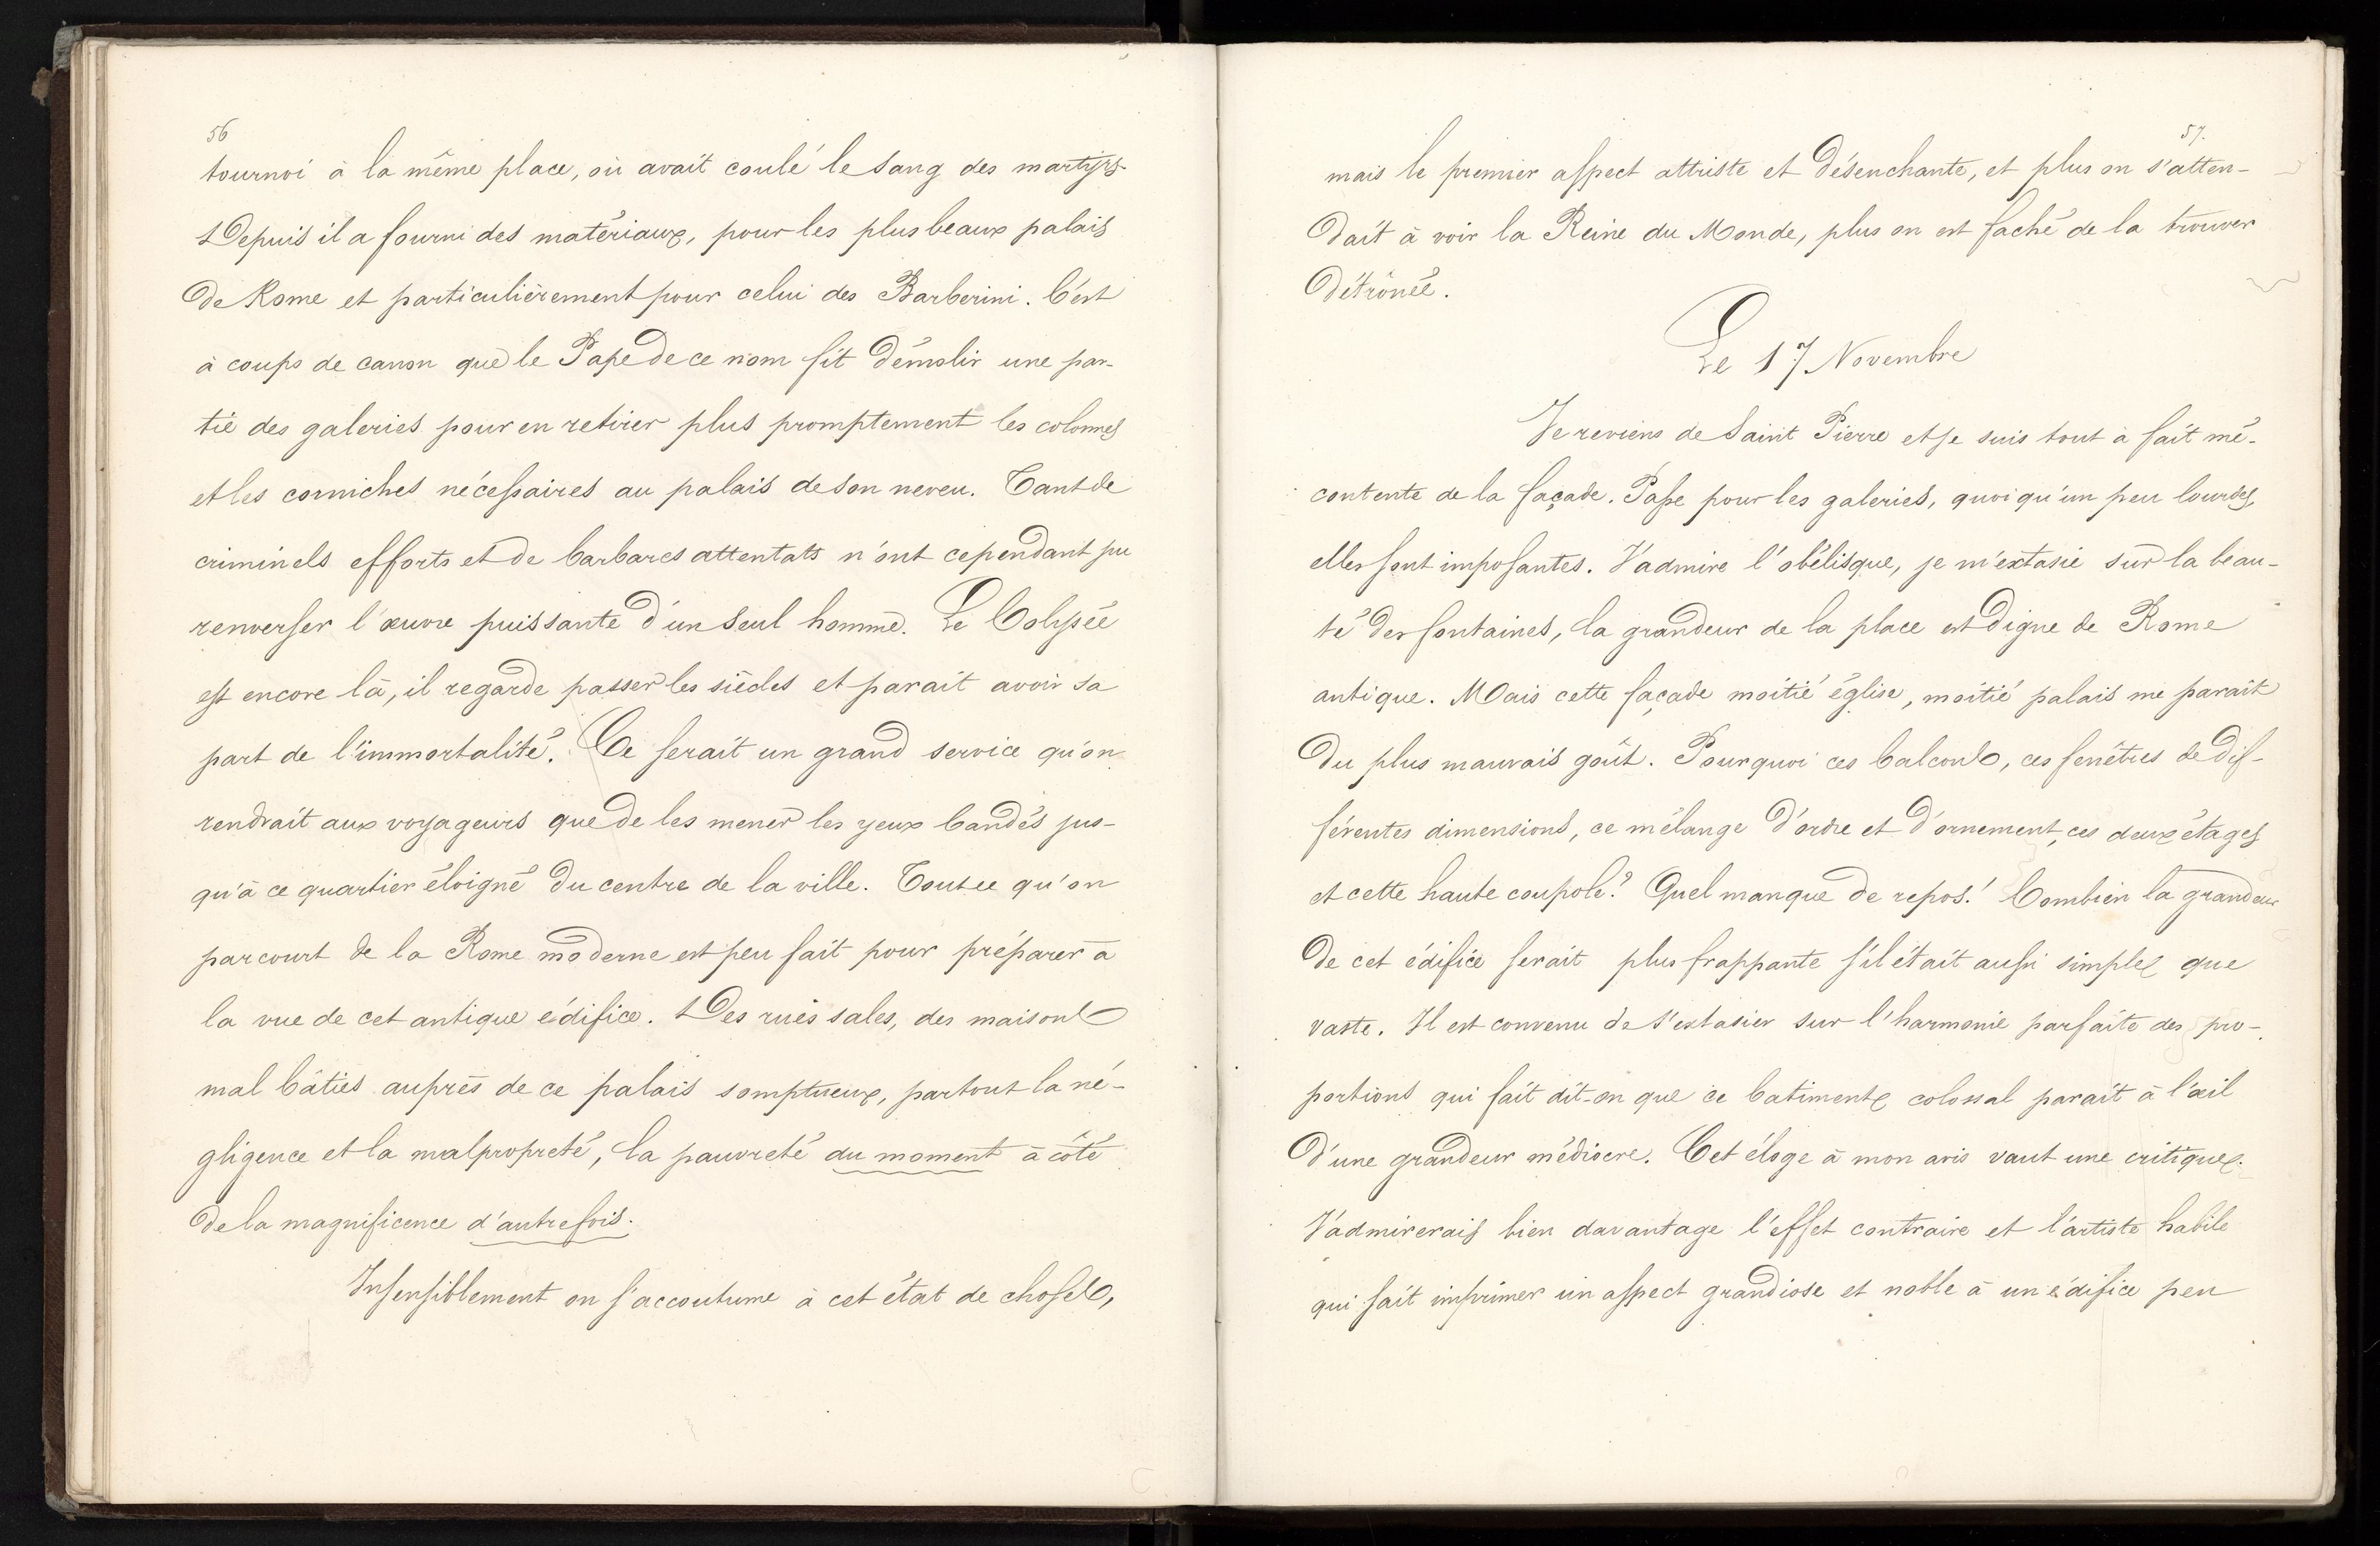 56
tournoi à la même place, où avait coulé le sang des martyrs.
Depuis il a fourni des matériaux, pour les plus beaux palais
de Rome et particulièrement pour celui des Barberini. C'est
à coups de canon que le Pape de ce nom fit démolir une par-
tie des galeries pour en retirer plus promptement les colonnes
et les corniches nécessaires au palais de son neveu. Tant de
criminels efforts et de barbares attentats n'ont cependant pu
renverser l'œuvre puissante d'un seul homme. Le Colysée
est encore là, il regarde passer les siècles et parait avoir sa
part de l'immortalité. Ce serait un grand service qu'on
rendrait aux voyageurs que de les mener les yeux bandés jus-
qu'à ce quartier éloigné du centre de la ville. Tout ce qu'on
parcourt de la Rome moderne est peu fait pour préparer à
la vue de cet antique édifice. Des rues sales, des maisons
mal bâties auprès de ce palais somptueux, partout la né-
gligence et la malpropreté, la pauvreté du moment à côté
de la magnificence d'autrefois.
Insensiblement on s'accoutume à cet état de choses,
57.
mais le premier aspect attriste et désenchante, et plus on s'atten-
dait à voir la Reine du Monde, plus on est faché de la trouver
détrônée.
Le 17 Novembre
Je reviens de Saint Pierre et je suis tout à fait mé-
contente de la façade. Passe pour les galeries, quoi qu'un peu lourdes,
elles sont imposantes. J'admire l'obélisque, je m'extasie sur la beau-
té des fontaines, la grandeur de la place est digne de Rome
antique. Mais cette façade moitié église, moitié palais me parait
du plus mauvais goût. Pourquoi ces balcons, ces fenêtres de dif-
férentes dimensions, ce mélange d'ordre et d'ornement, ces deux étages
et cette haute coupole? Quel manque de repos! Combien la grandeur
de cet édifice serait plus frappante s'il était aussi simple que
vaste. Il est convenu de s'extasier sur l'harmonie parfaite des pro-
portions qui fait dit-on que ce batiment colossal parait à l'œil
d'une grandeur médiocre. Cet éloge à mon avis vaut une critique.
J'admirerais bien davantage l'effet contraire et l'artiste habile
qui sait imprimer un aspect grandiose et noble à un édifice peu